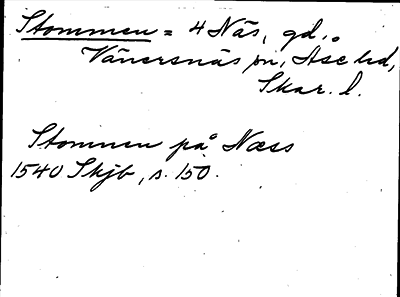 Stommen = 4 Näs, gd,
Vänersnäs sn, Åse hd,
Skar. l.
Stommen på Næss
1540 Skjb, s. 150.